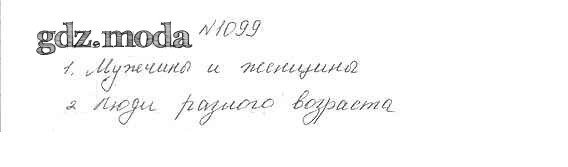 gdz.moda №1099
1. Мужчины и женщины
2 Люди разного возраста